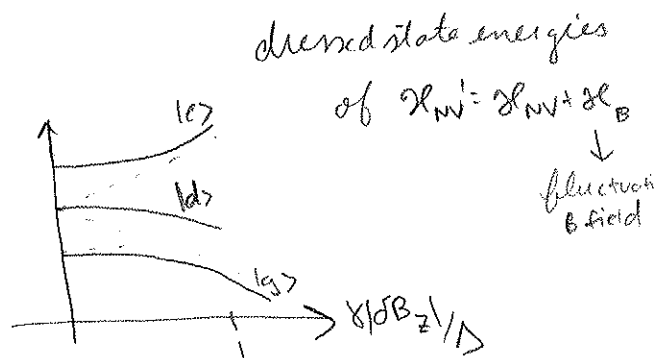 dressed state energies
of ℋ_NV' = ℋ_NV + ℋ_B
↓
fluctuati
B field
|e>
|d>
|g>
γ|δB_z|/Δ
1